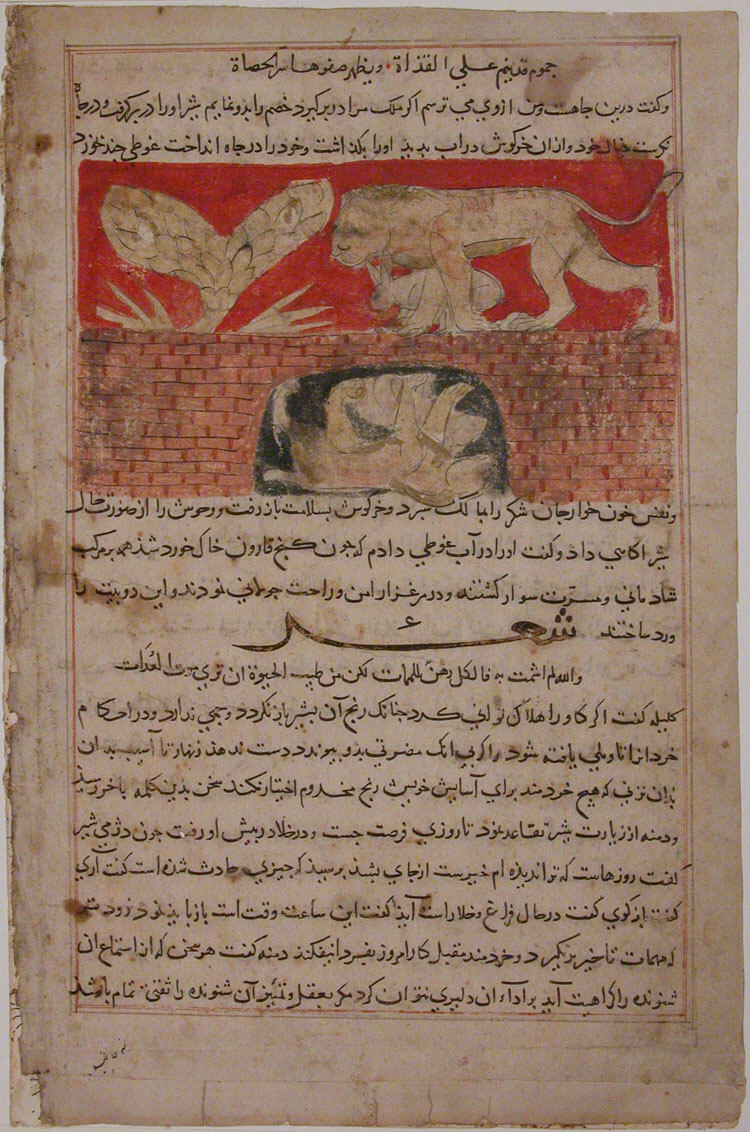 جموم قد ینم علی القذاة ویظهر صفوها سر الحصاة
وکفت درین جاهست ومن ازوی می ترسم اکر ملک مرا دربر کیرد خصم را بدو نمایم شیر اورا دربر کرفت ودر جاه
نکرست خیال خود وازان خرکوش در اب بدید اورا بکذاشت وخود را در جاه انداخت غوطی چند خورد
ونفس خون خوار جان شکر را بمالک سبرد وخرکوش بسلامت باز رفت ووحوش را از صورت حال
شیر اکاهی داد وکفت اورا در آب غوطی دادم که جون کنج قارون خاک خورد شد همه بر مرکب
شادمانی ومسرت سوار کشتند ودر مرغزار امن وراحت جولانی نمودند واین دو بیت را
ورد ساختند شعر
والله لم اشمت به فالکل رهن للممات لکن من طیب الحیوة ان تری موت العداة
کلیله کفت اکر کاو را هلاک توانی کرد جنانک رنج آن بشیر باز نکردد وجهی ندارد ودر احکام
خرد انرا تاویلی یافته شود واکر بی انک مضرتی بدو بیوندد دست ندهد زنهار تا آسیب بدان
که هیچ خردمند برای آسایش خویش رنج مخدوم اختیار نکند سخن بدین کلمه باخر رسید
ودمنه از زیارت شیر تقاعد نمود تا روزی فرصت جست ودر خلا بیش او رفت جون دژمی شیر
کفت روزهاست که ترا ندیده ام خیرست از جای بشد برسید که جیزی حادث شده است کفت آری
کفت بازکوی کفت در حال فراغ وخلا راست آید کفت این ساعت وقت است باز باید نمود زودتر
که مهمات تاخیر بر نکیرد وخردمند مقبل کار امروز بفردا نیفکند دمنه کفت هر سخن که از استماع ان
شنونده را کراهیت آید بر اداء ان دلیری نتوان کرد مکر بعقل وتمیز آن شنونده را ثقتی تمام باشد